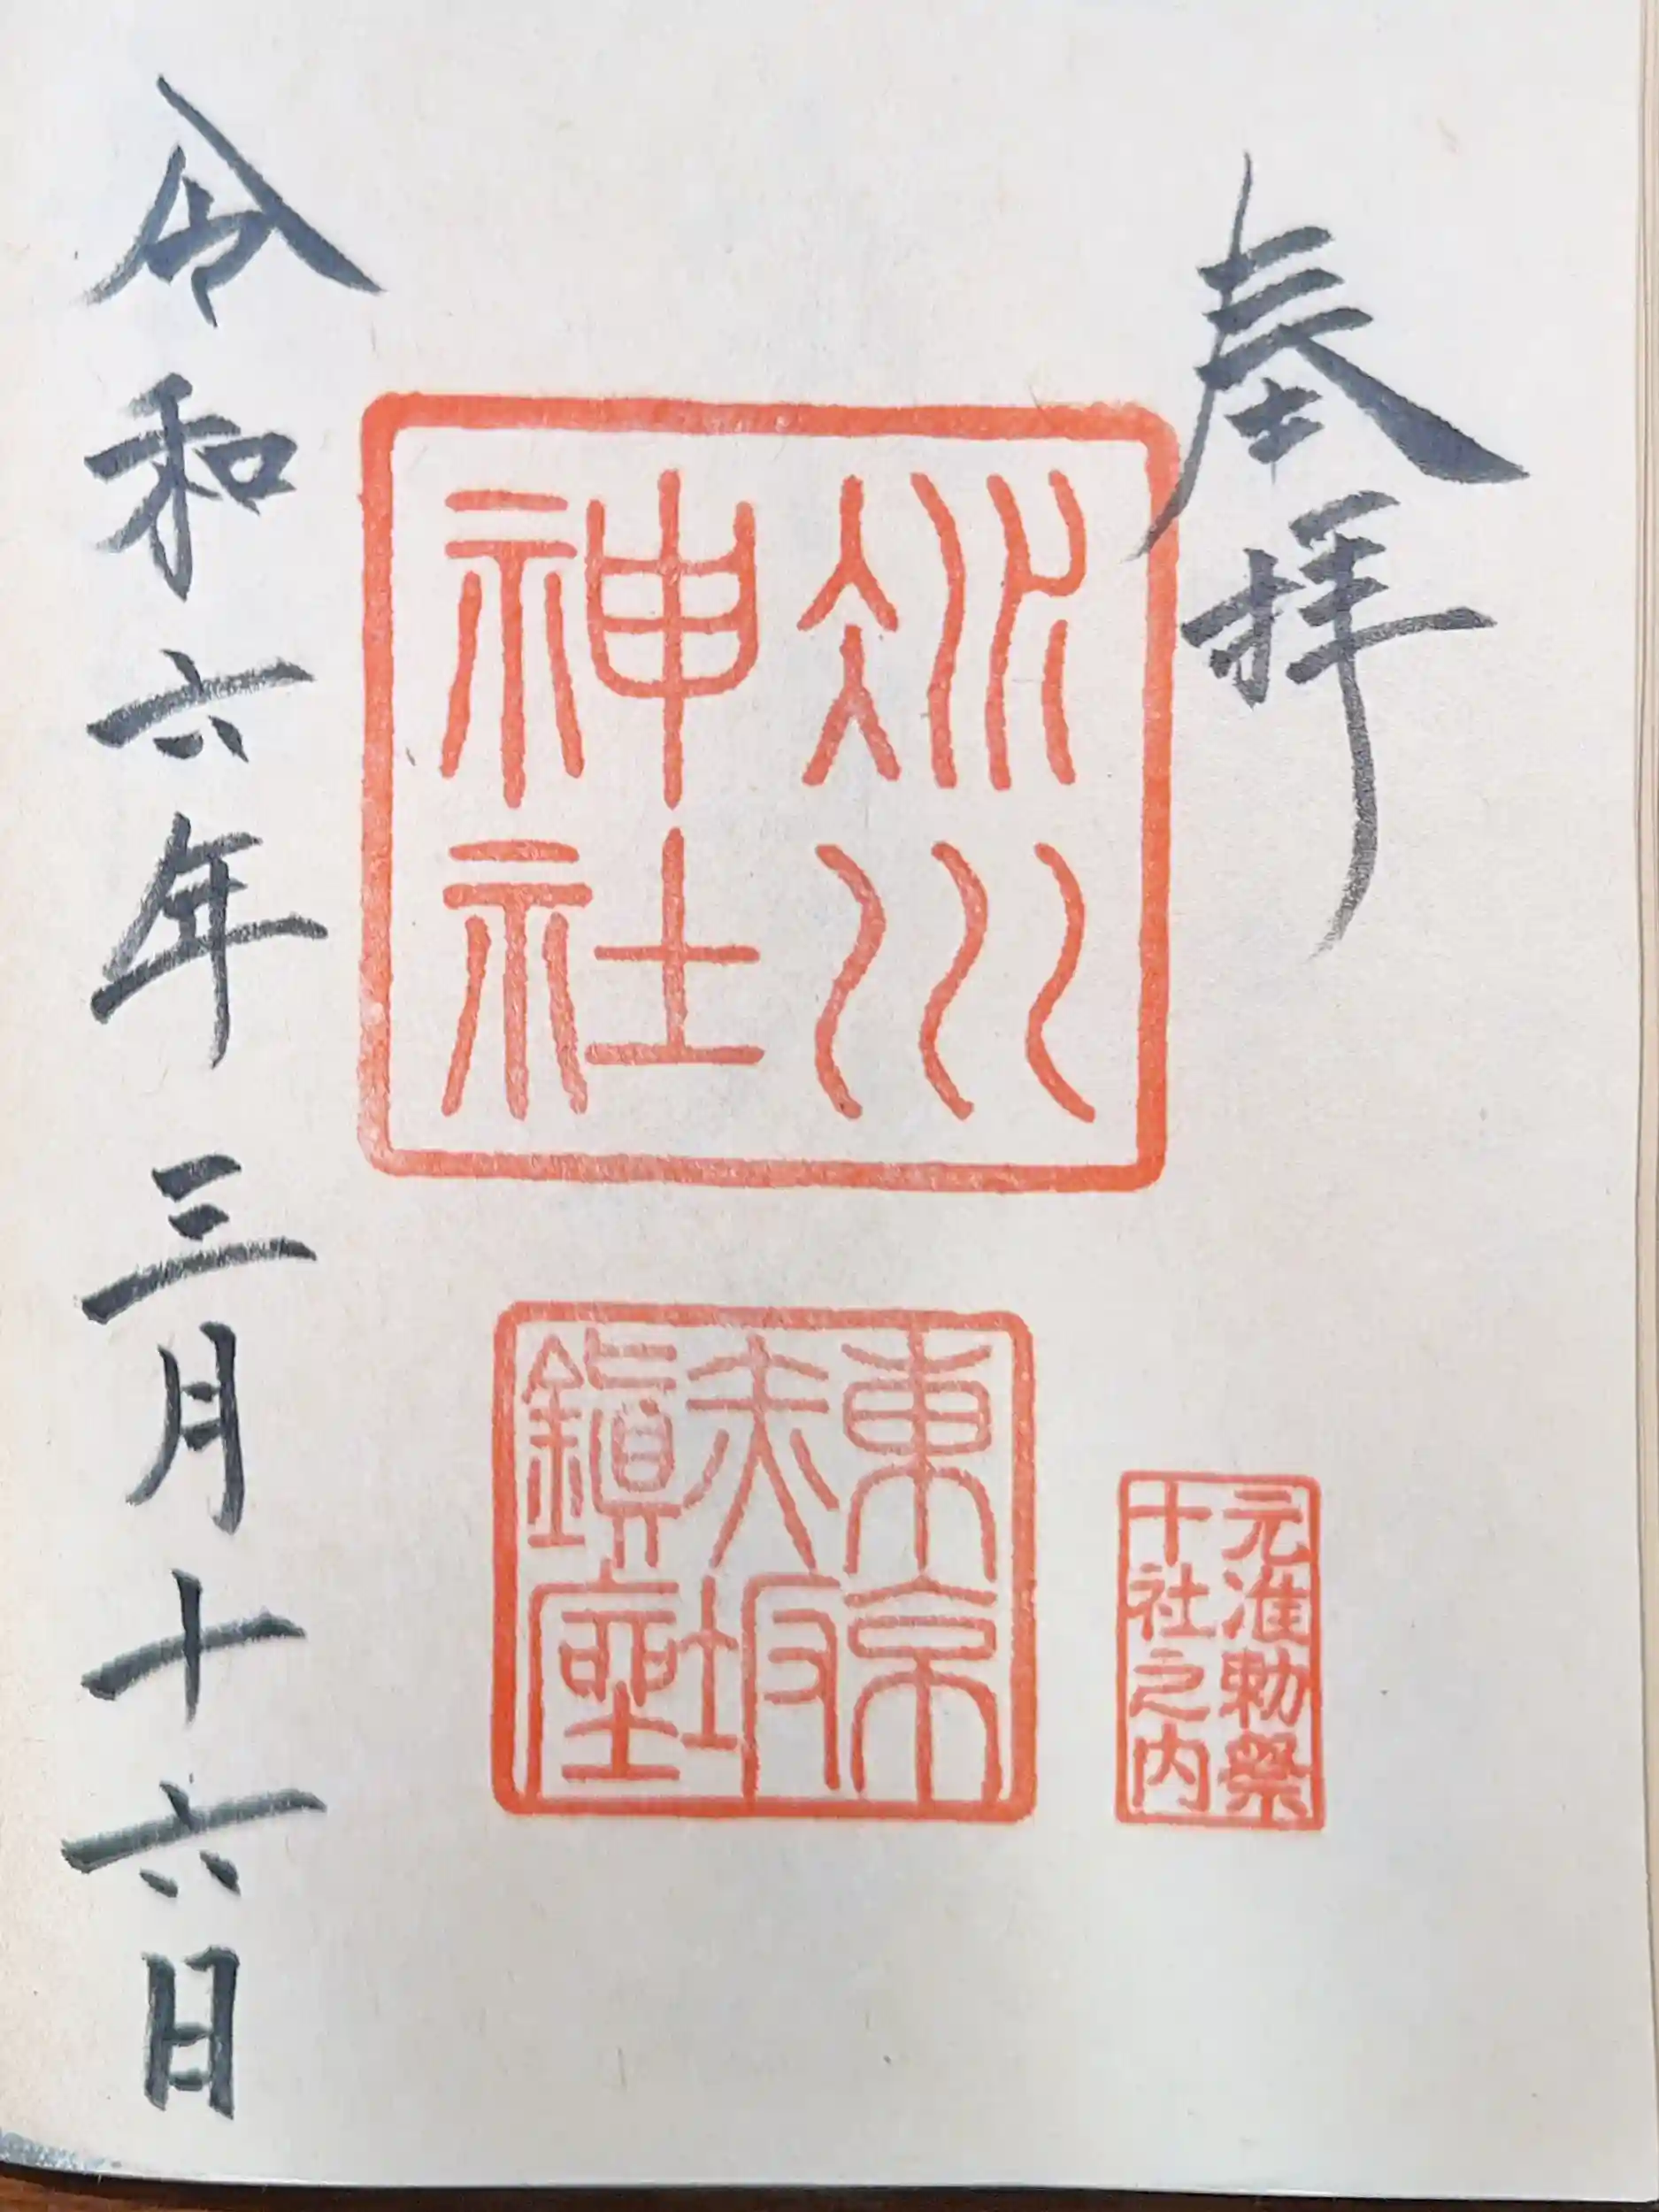 奉拝
氷川
神社
東京
赤坂
鎮座
元准勅祭
十社之内
令和六年三月十六日